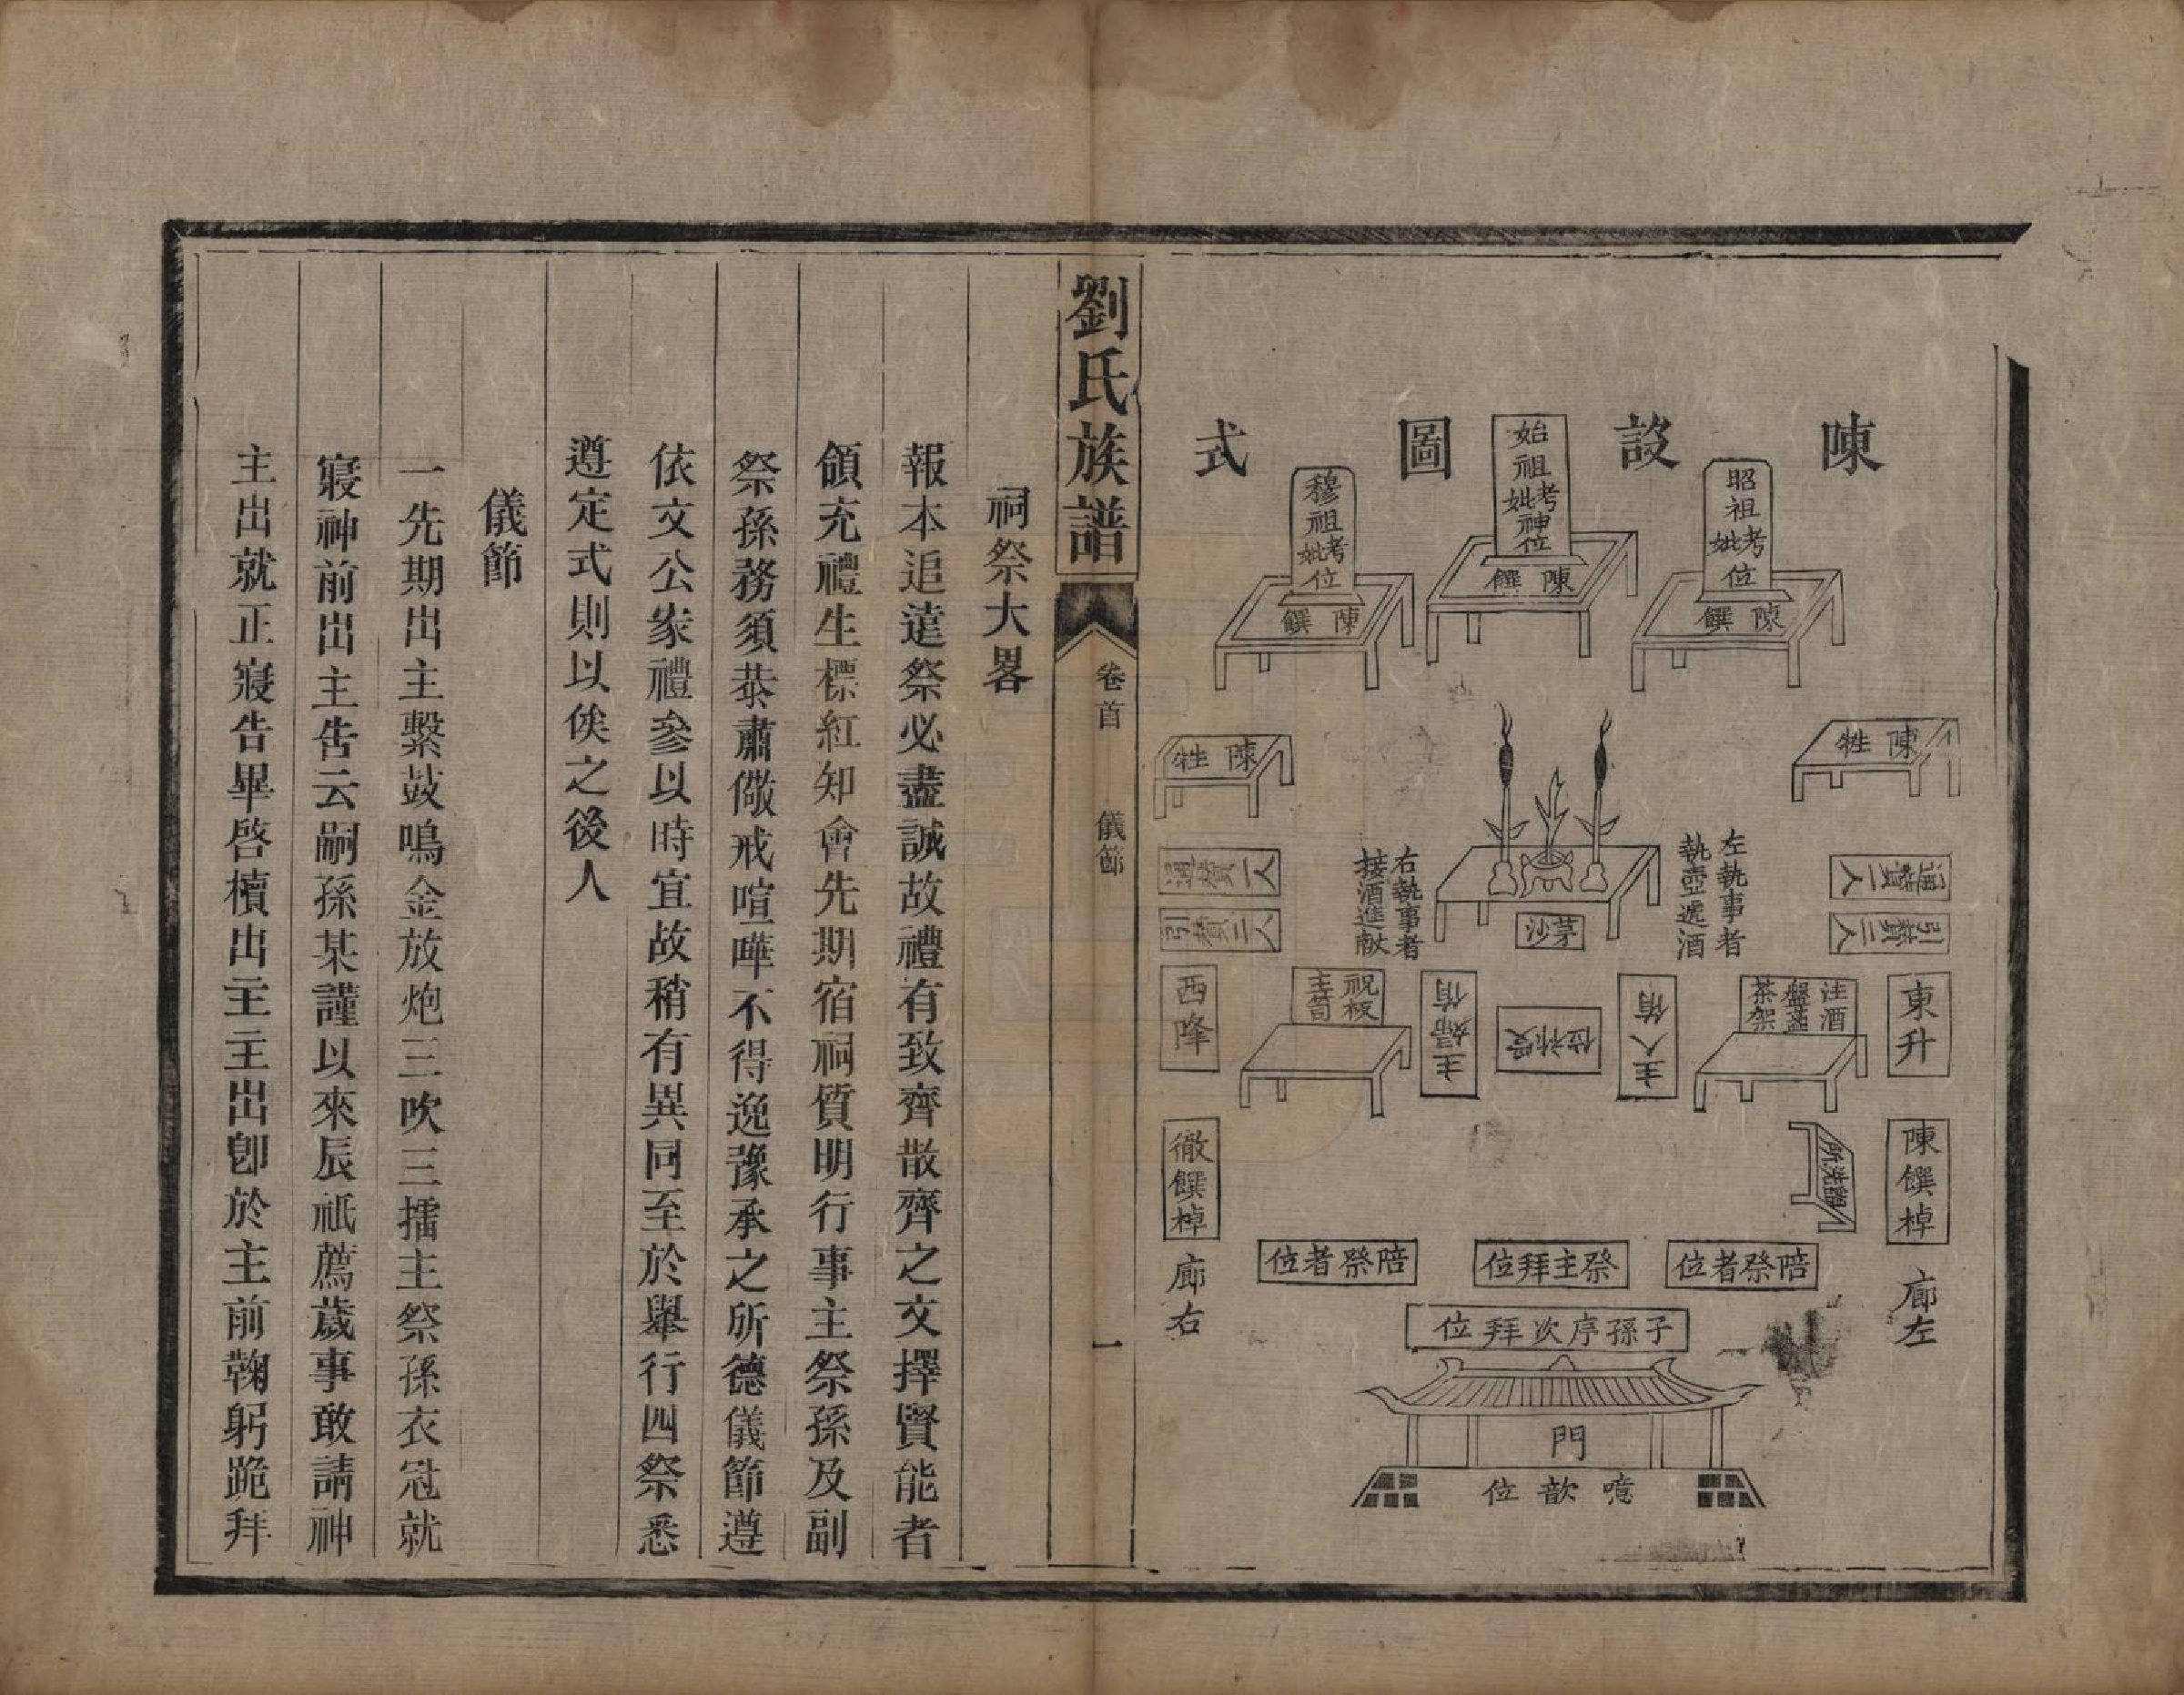 陳設圖式
昭祖考妣位
陳饌
始祖考妣神位
陳饌
穆祖考妣位
陳饌
陳牲
陳牲
左執事者
執壺遞酒
右執事者
接酒進献
茅沙
通賛一人
引賛二人
通賛一人
引賛二人
東升
注酒
盤盞
茶架
主人脩
受祚位
主婦脩
祝板
主笥
西降
陳饌棹
盥洗所
徹饌棹
廊左
廊右
陪祭者位
祭主拜位
陪祭者位
子孫序次拜位
門
噫歆位
劉氏族譜
卷首
儀節
一
祠祭大畧
報本追遠祭必盡誠故禮有致齊散齊之文擇賢能者
領充禮生標紅知會先期宿祠質明行事主祭孫及副
祭孫務須恭肅儆戒喧嘩不得逸豫承之所德儀節遵
依文公家禮參以時宜故稍有異同至於舉行四祭悉
遵定式則以俟之後人
儀節
一先期出主繫鼓鳴金放炮三吹三擂主祭孫衣冠就
寢神前出主告云嗣孫某謹以來辰祗薦歲事敢請神
主出就正寢告畢啓櫝出主主出卽於主前鞠躬跪拜